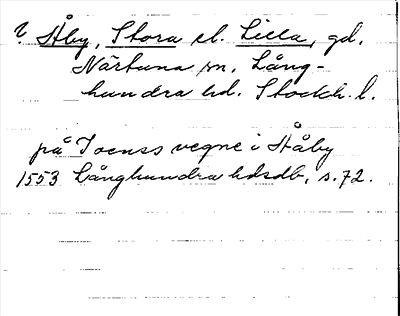 ? Åby, Stora el. Lilla, gd.
Närtuna sn. Lång-
hundra hd. Stockh. l.
på Joenss vegne i Håby
1553 Långhundra hdsdb, s. 72.